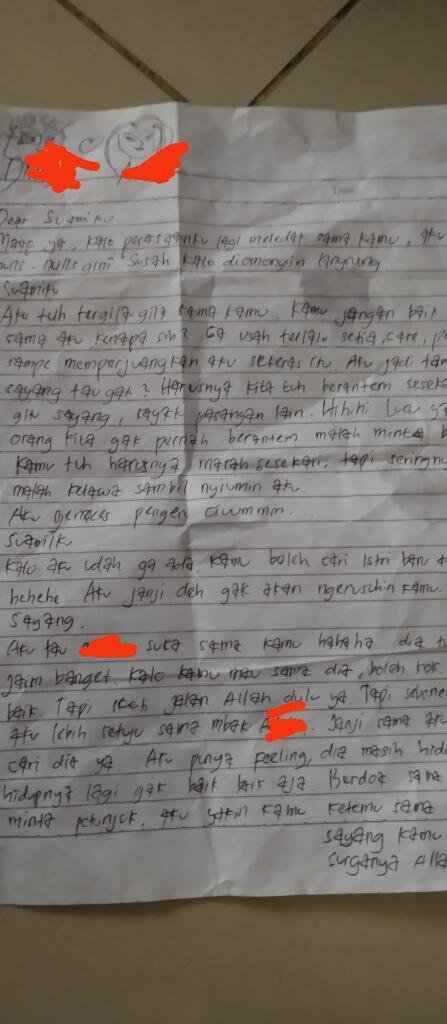 Dear Suamiku
Maaf ya, kalo perasaanku lagi meledak sama kamu, aku
nulis-nulis gini susah kalo diomongin langsung
Suamiku
Aku tuh tergila-gila sama kamu. Kamu jangan baik
sama aku kenapa sih? Ga usah terlalu setia, care,
sampe memperjuangkan aku sekeras itu. Aku jadi tam
sayang tau gak? Harusnya kita tuh berantem sesek
gitu sayang, layak pasangan lain. Hihihi Lua
orang kita gak pernah berantem malah minta
Kamu tuh harusnya marah sesekali, tapi seringnu
malah ketawa sambil nyiumin aku
Aku gemaces pengen ciummm...
Suamik
Kalo aku udah ga ada. Kamu boleh cari istri baru
hehehe Aku janji deh gak akan ngerusuhin kamu.
Sayang.
Aku tau suka sama kamu. hahaha. dia
jaim banget. Kalo kamu mau sama dia, boleh kok.
baik. Tapi jalan Allah dulu ya. Tapi sebene
aku lebih setuju sama mbak A Janji sama
cari dia ya. Aku punya feeling, dia masih hid
hidupnya lagi gak baik baik aja. Berdoa sama
minta petunjuk, aku yakin kamu ketemu sama
sayang kamu
surganya Alla